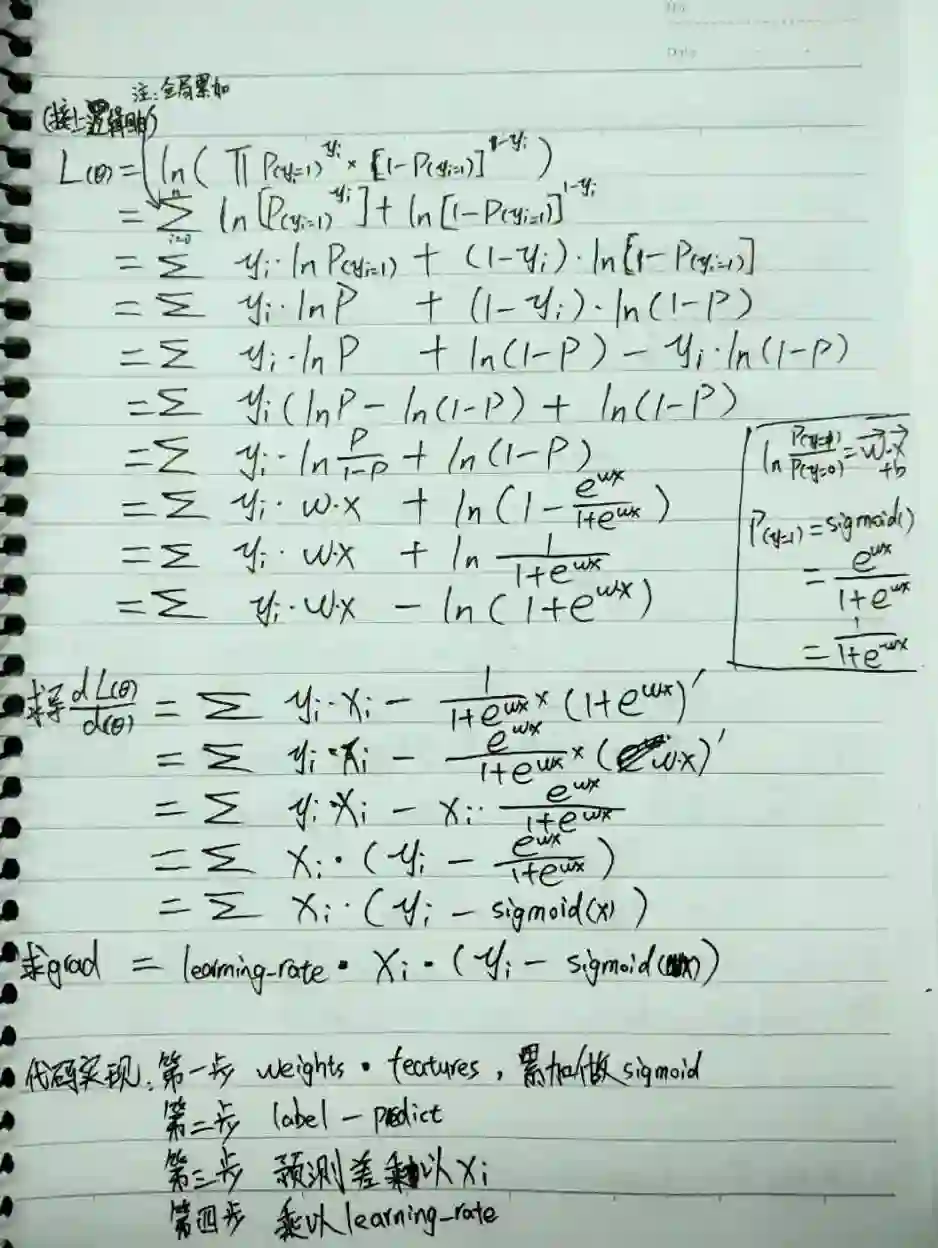 No.
Date
注:全局累加
(接上逻辑回归)
L(θ) = ln( ∏ P(yi=1)^yi × [1-P(yi=1)]^1-yi )
= n∑i=0 ln[P(yi=1)^yi] + ln[1-P(yi=1)]^1-yi
= ∑ yi · ln P(yi=1) + (1-yi) · ln[1-P(yi=1)]
= ∑ yi · ln P + (1-yi) · ln(1-P)
= ∑ yi · ln P + ln(1-P) - yi · ln(1-P)
= ∑ yi (ln P - ln(1-P) + ln(1-P)
= ∑ yi · ln P/1-P + ln(1-P)
= ∑ yi · w·x + ln(1 - e^wx/1+e^wx)
= ∑ yi · w·x + ln 1/1+e^wx
= ∑ yi · w·x - ln(1+e^wx)
ln P(y=1)/P(y=0) = w⃗·x⃗
+b
P(y=1) = sigmoid()
= e^wx/1+e^wx
= 1/1+e^-wx
求导 dL(θ)/d(θ) = ∑ yi · xi - 1/1+e^wx × (1+e^wx)′
= ∑ yi · xi - e^wx/1+e^wx × (w·x)′
= ∑ yi · xi - xi · e^wx/1+e^wx
= ∑ xi · (yi - e^wx/1+e^wx)
= ∑ xi · (yi - sigmoid(x))
求grad = learning_rate · xi · (yi - sigmoid(wx))
代码实现:第一步 weights · features,累加做sigmoid
第二步 label - predict
第三步 预测差乘以xi
第四步 乘以learning_rate